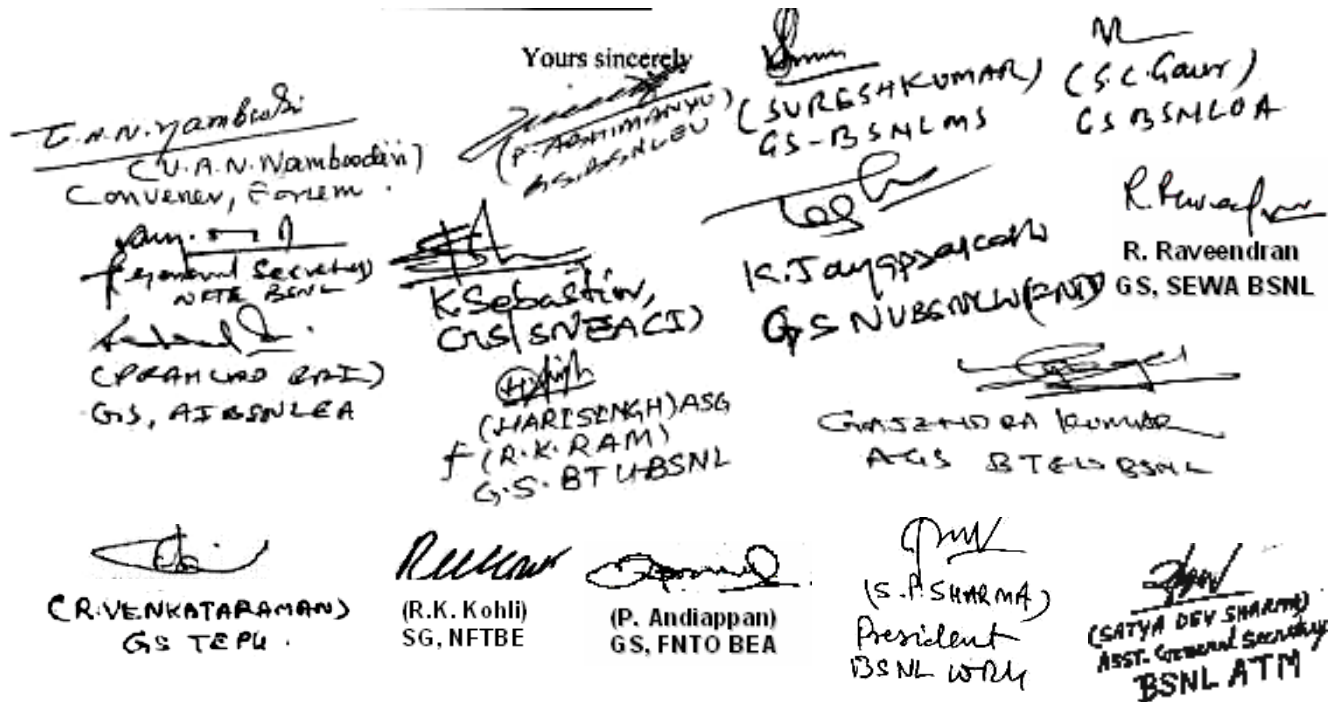 Yours sincerely
V.A.N. Namboodiri
(V.A.N. Namboodiri)
Convener, Forum.
(P. ABHIMANYU)
GS, BSNLEU
(SURESHKUMAR)
GS-BSNLMS
(S.C. Gaur)
GS BSNLOA
General Secretary
NFTE BSNL
K. Sebastin,
GS/SNEA(I)
K. Jayaprakash
GS NUBSNLW(FNTO)
R. Raveendran
GS, SEWA BSNL
(PRAHLAD RAI)
GS, AIBSNLEA
(HARISINGH) ASG
f (R.K. RAM)
G.S. BTU BSNL
GAJENDRA KUMAR
AGS BTEU BSNL
(R. VENKATARAMAN)
GS TEPU.
(R.K. Kohli)
SG, NFTBE
(P. Andiappan)
GS, FNTO BEA
(S.P. SHARMA)
President
BSNL WRU
(SATYA DEV SHARMA)
ASST. General Secretary
BSNL ATM